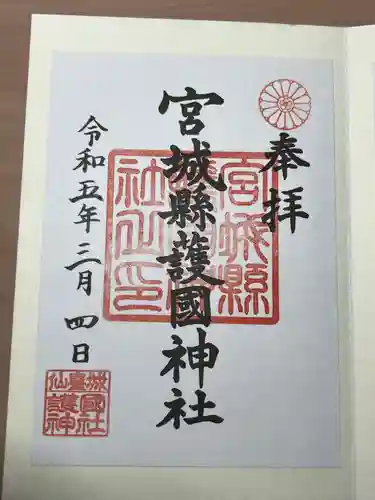 奉拝
宮城縣護國神社
令和五年三月四日
宮城縣
護國神
社之印
城國社
仙臺護神